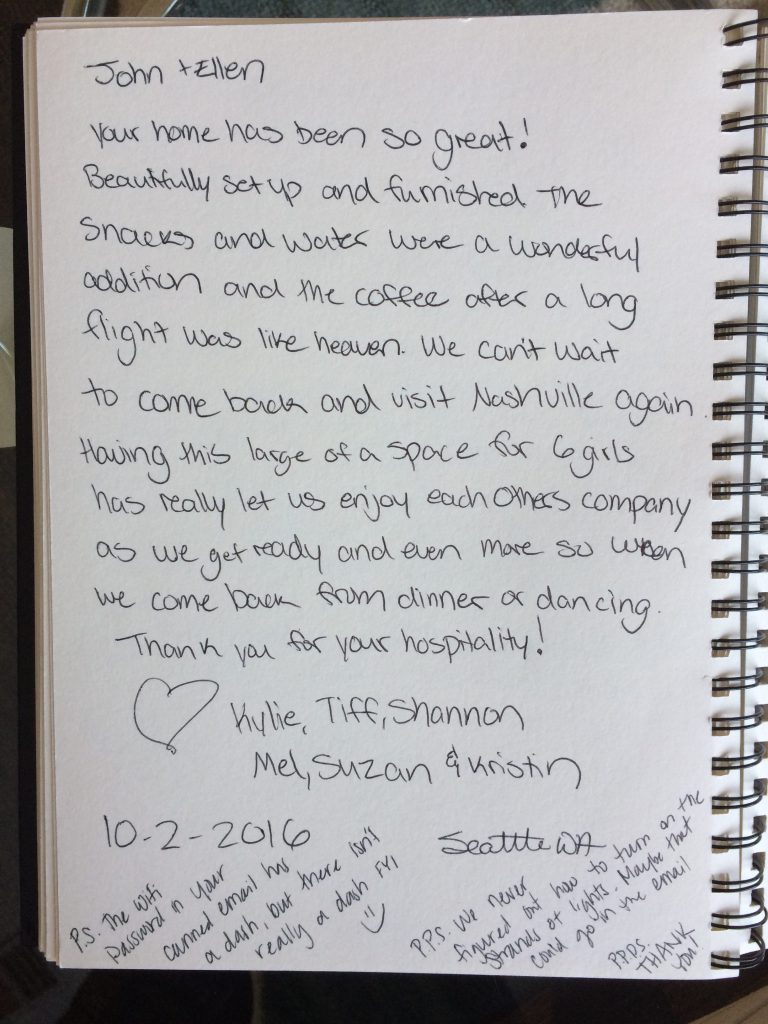 John + Ellen
Your home has been so great!
Beautifully set up and furnished. The
snacks and water were a wonderful
addition and the coffee after a long
flight was like heaven. We can't wait
to come back and visit Nashville again.
Having this large of a space for 6 girls
has really let us enjoy each others company
as we get ready and even more so when
we come back from dinner or dancing.
Thank you for your hospitality!
Kylie, Tiff, Shannon
Mel, Suzan & Kristin
10-2-2016
Seattle WA
P.S. The wifi
password in your
canned email has
a dash, but there isn't
really a dash FYI
P.P.S. We never
figured out how to turn on the
strands of lights. Maybe that
could go in the email
P.P.D.S.
THANK
YOU!